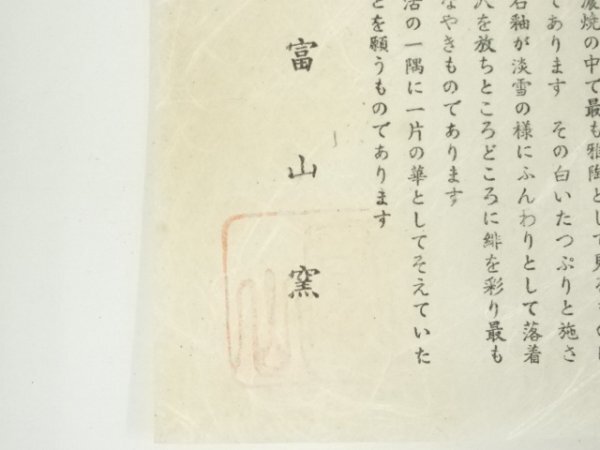 濃焼の中で最も雅陶として見る
であります その白いたっぷりと施さ
石釉が淡雪の様にふんわりとして落着
穴を放ちところどころに緋を彩り最も
なやきものであります
活の一隅に一片の華としてそえていた
とを願うものであります
富山窯